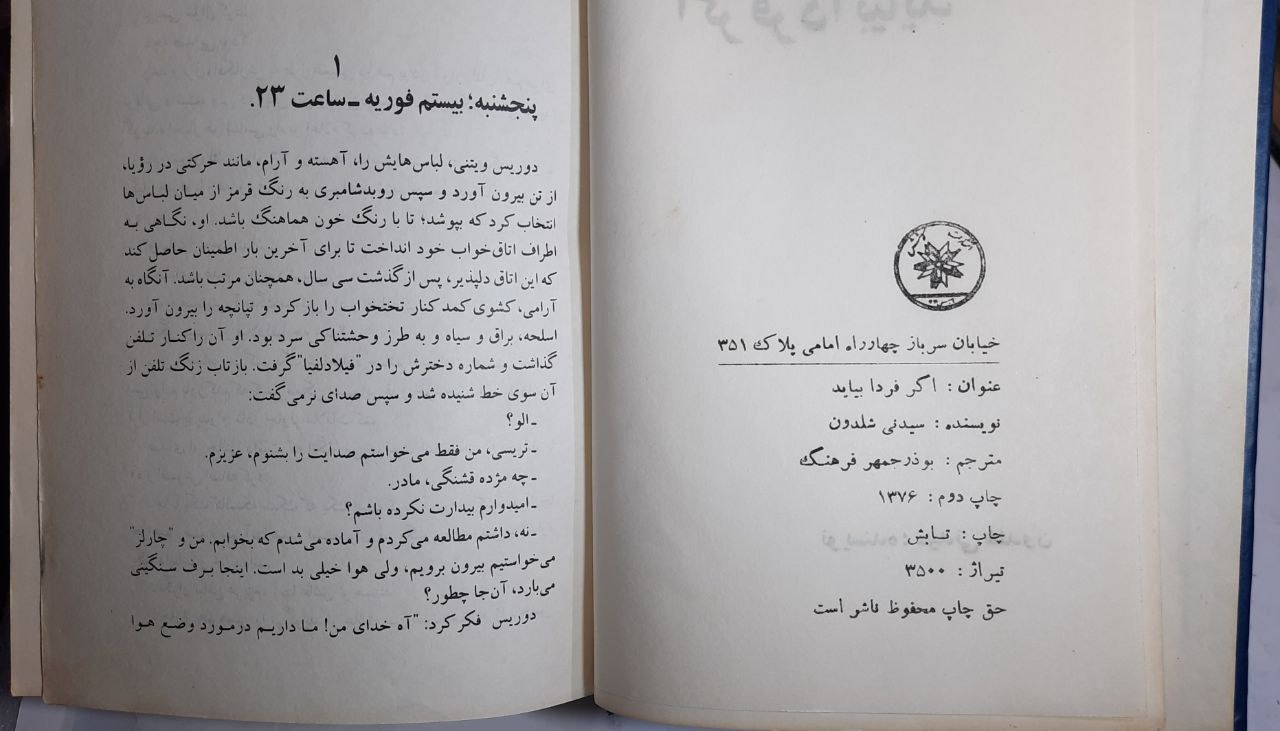 خیابان سرباز چهارراه امامی پلاک ۳۵۱
عنوان : اگر فردا بیاید
نویسنده : سیدنی شلدون
مترجم : بوذرجمهر فرهنگ
چاپ دوم : ۱۳۷۶
چاپ : تابش
تیراژ : ۳۵۰۰
حق چاپ محفوظ ناشر است
۱
پنجشنبه؛ بیستم فوریه ـ ساعت ۲۳.
دوریس ویتنی، لباس‌هایش را، آهسته و آرام، مانند حرکتی در رؤیا،
از تن بیرون آورد و سپس روبدشامبری به رنگ قرمز از میان لباس‌ها
انتخاب کرد که بپوشد؛ تا با رنگ خون هماهنگ باشد. او، نگاهی به
اطراف اتاق‌خواب خود انداخت تا برای آخرین بار اطمینان حاصل کند
که این اتاق دلپذیر، پس از گذشت سی سال، همچنان مرتب باشد. آنگاه به
آرامی، کشوی کمد کنار تختخواب را باز کرد و تپانچه را بیرون آورد.
اسلحه، براق و سیاه و به طرز وحشتناکی سرد بود. او آن را کنار تلفن
گذاشت و شماره دخترش را در "فیلادلفیا" گرفت. بازتاب زنگ تلفن از
آن سوی خط شنیده شد و سپس صدای نرمی گفت:
ـ الو؟
ـ تریسی، من فقط می‌خواستم صدایت را بشنوم، عزیزم.
ـ چه مژده قشنگی، مادر.
ـ امیدوارم بیدارت نکرده باشم؟
ـ نه، داشتم مطالعه می‌کردم و آماده می‌شدم که بخوابم. من و "چارلز"
می‌خواستیم بیرون برویم، ولی هوا خیلی بد است. اینجا برف سنگینی
می‌بارد، آن‌جا چطور؟
دوریس فکر کرد: "آه خدای من! ما داریم درمورد وضع هوا